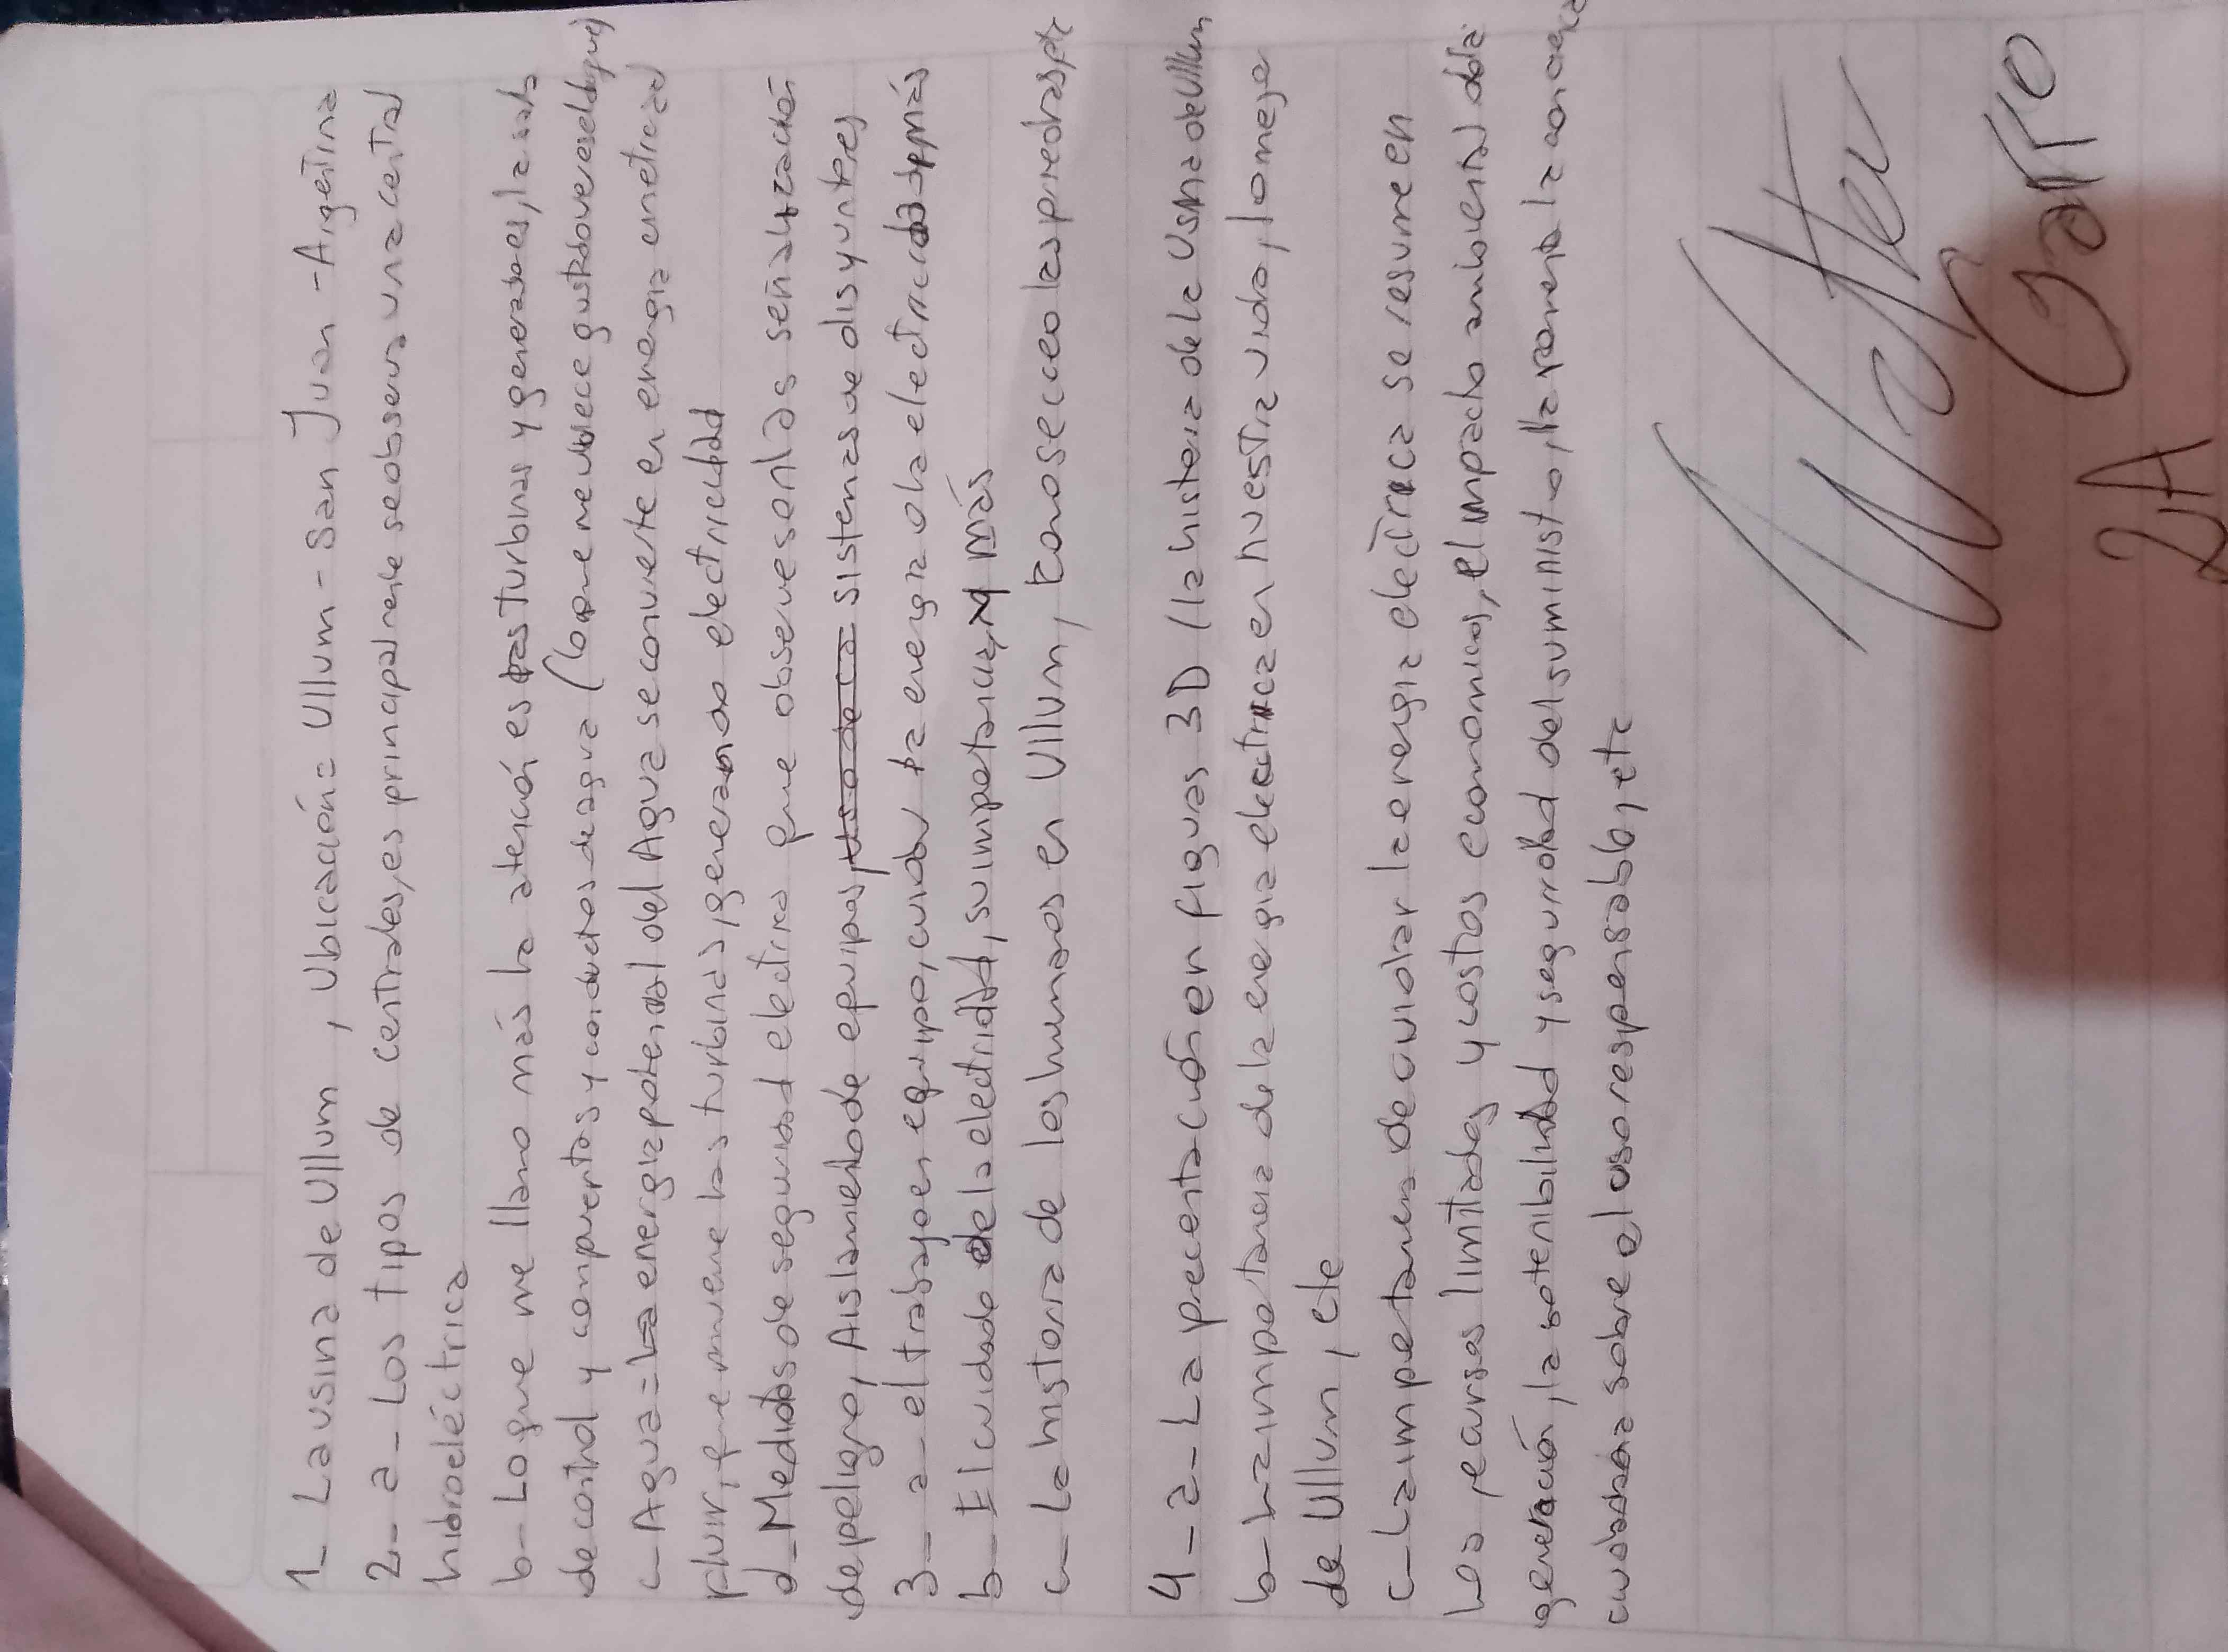 1_ La usina de Ullum, Ubicación= Ullum - San Juan - Argentina
2_- a_ Los tipos de centrales, es principalmente se observa una central
hidroeléctrica
b- Lo que me llamo más la atención es las turbinas y generadores, la sala
de control y compuertas y conductos de agua (lo que me ubiece gustado ver es el dique)
c- Agua = La energia potencial del Agua se convierte en energia cinetica al
fluir, que mueve las turbinas, generando electricidad
d_ Medidas de seguridad electrica que observe son las señalización
de peligro, Aislamiento de equipos, uso de ca sistemas de disyuntores
3_ a_ el trabajo en equipo, cuidar la energia ola electricidad y más
b_ El cuidado de la electricidad, su importancia, y más
c_ La historia de los humanos en Ullum, conoseccco las piedras, etc
4_ a_ La precentación en figuas 3D (la historia de la Usina de Ullum
b- La importancia de la energia electrica en nuestra vida, lo mejor
de Ullum, etc
c- La importancia de cuidar la energia electrica se resume en
los recursos limitados y costos economicos, el impacto ambiental de la
generación, la sotenibilidad y seguridad del suministro, la
ciudadania sobre el uso responsable, etc
2A